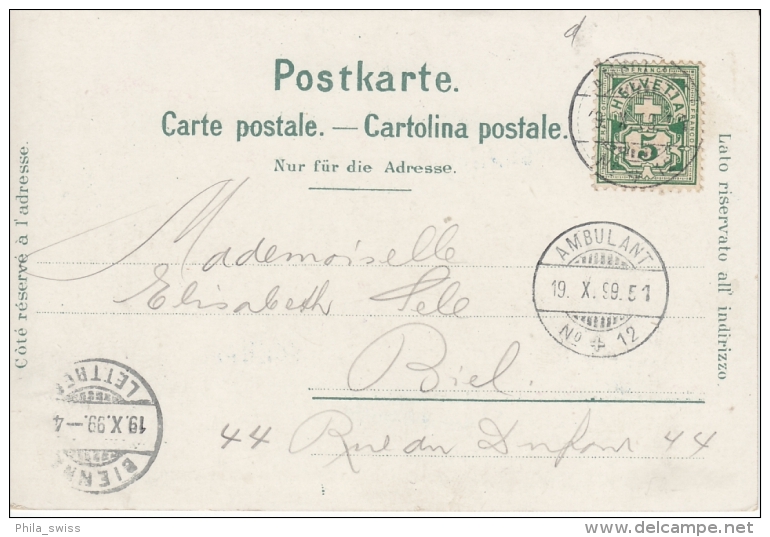 Postkarte.
Carte postale. — Cartolina postale.
Nur für die Adresse.
Côté réservé à l'adresse.
Lato riservato all' indirizzo.
FRANCO
HELVETIA
5
Mademoiselle
Elisabeth
Biel.
44 Rue du Dufour 44
AMBULANT
19. X. 99. 51
No 12
LETTR
19. X. 99. — 4
BIENN
Phila_swiss
delcampe.net